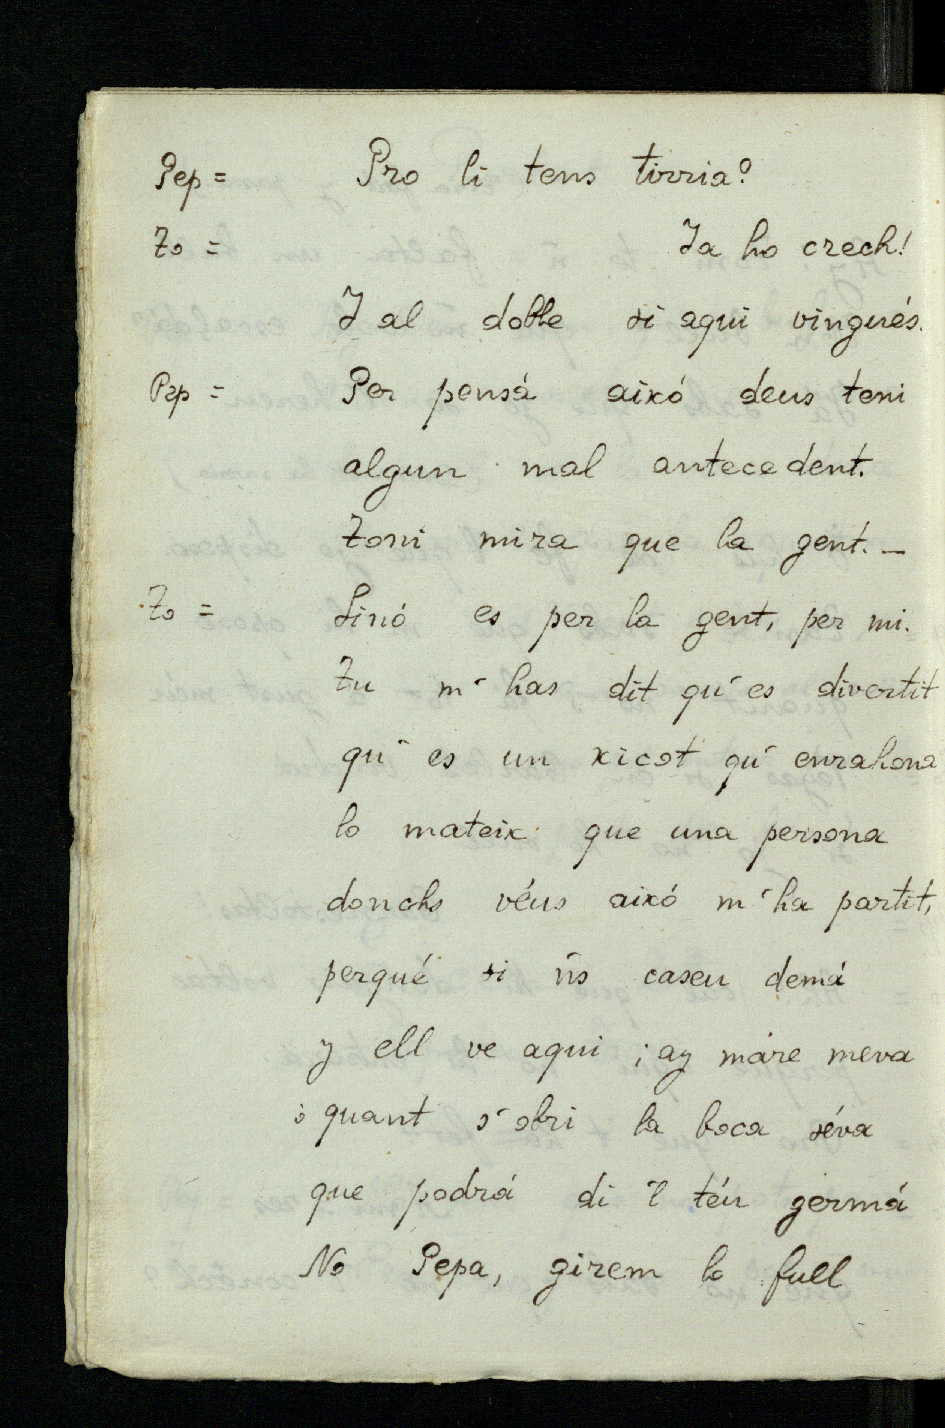 Pep = Pro li tens tirria?
To = Ja ho crech!
Y al doble si aqui vingués.
Pep = Per pensá aixó deus teni
algun mal antecedent.
Toni mira que la gent. _
To = Sinó es per la gent, per mi.
Tu m'has dit qu'es divertit
qu'es un xicot qu'enrahona
lo mateix que una persona
donchs véus aixó m'ha partit,
perqué si ns caseu demá
y ell ve aqui ; ay máre meva
ó quant s'obri la boca séva
que podrá di 'l téu germá
No Pepa, girem lo full